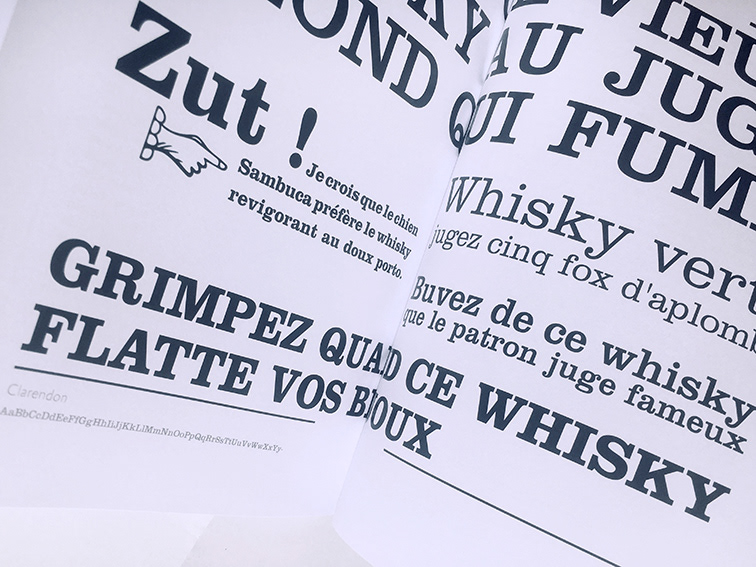 Zut !
Je crois que le chien
Sambuca préfère le whisky
revigorant au doux porto.
VIEU
AU JUG
QUI FUM
Whisky vert
jugez cinq fox d'aplomb
Buvez de ce whisky
que le patron juge fameux
GRIMPEZ QUAND CE WHISKY
FLATTE VOS BIJOUX
Clarendon
AaBbCcDdEeFfGgHhIiJjKkLlMmNnOoPpQqRrSsTtUuVvWwXxYy